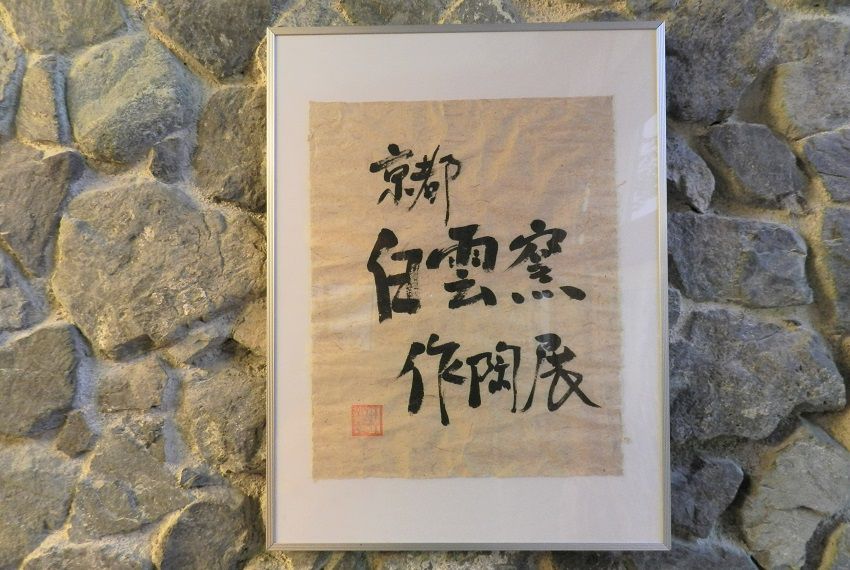 京都
白雲窯
作陶展